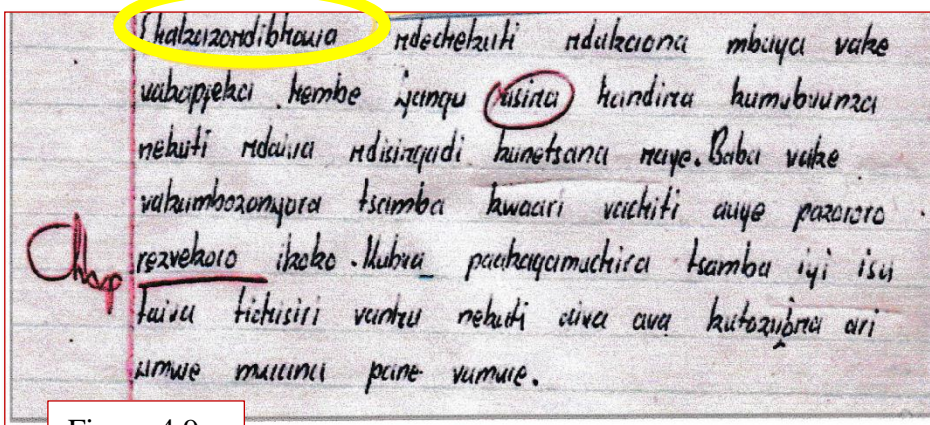 ndechekuti ndakaona mbuya vake
vakapfeka hembe yangu asina handina kumubvunza
nekuti ndaiva ndisingadi kunetsana naye. Baba vake
vakambozonyora tsamba kwaari vachiti auye pazororo
rezvekoro ikoko. Kubva paakagamuchira tsamba iyi isu
taiva tichisiri vanhu nekuti aiva ava kutozvibna ari
umwe munu pane vamwe.
Figure 4.9